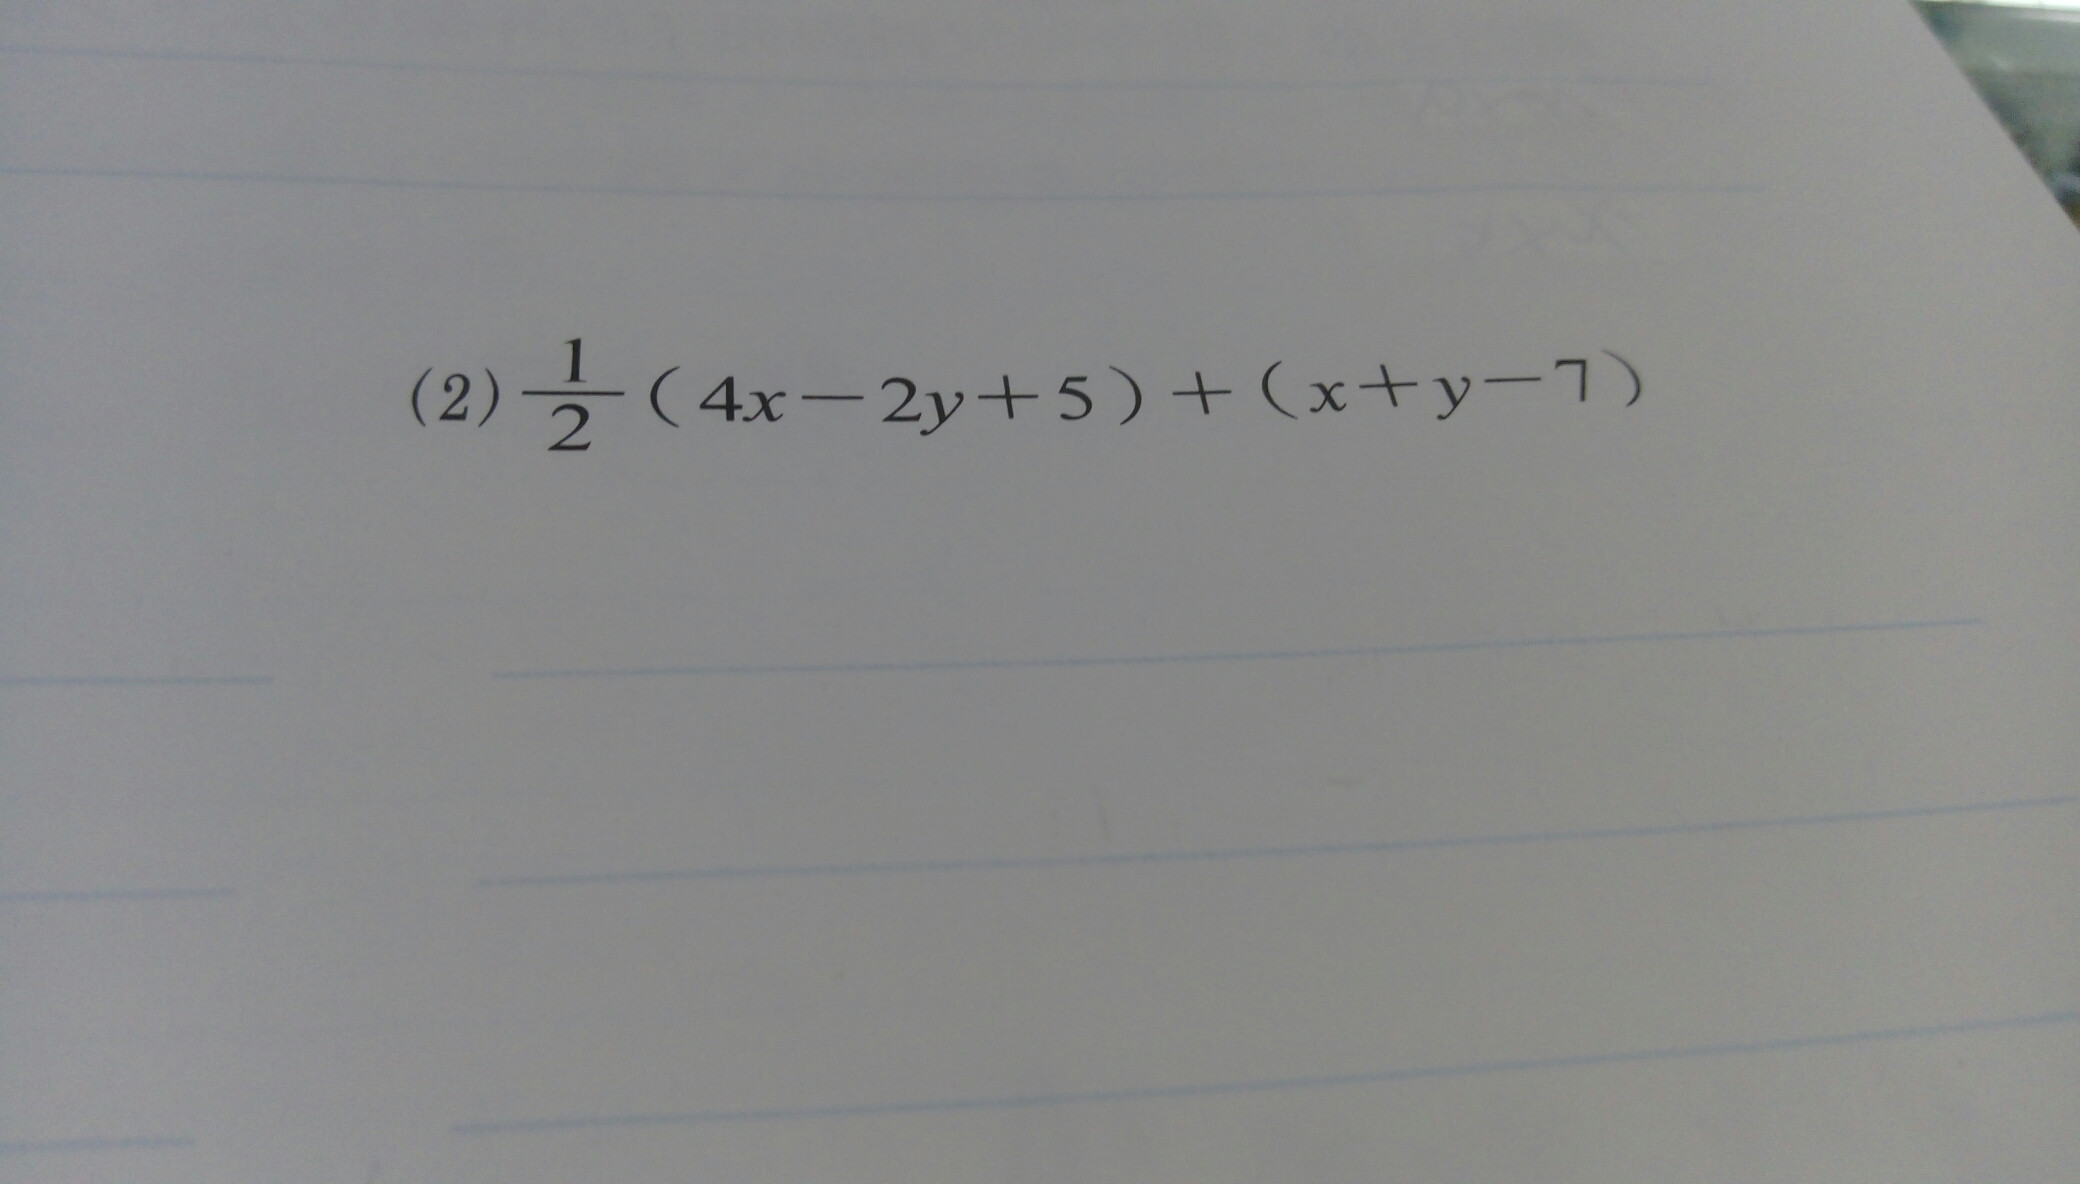 (2) \frac{1}{2}(4x-2y+5)+(x+y-7)